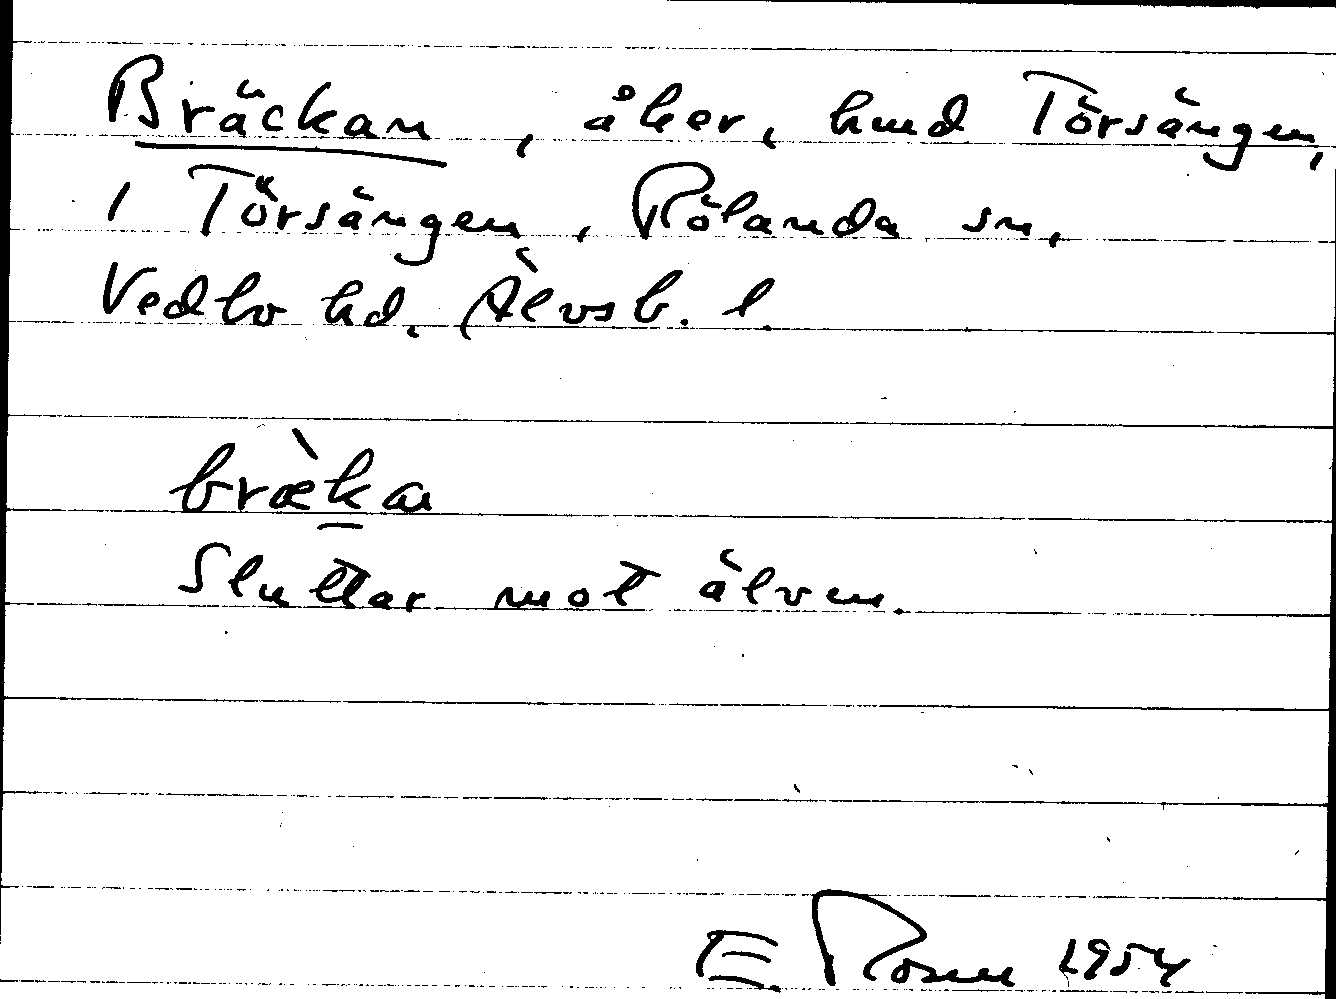 Bräckan, åker, hmd Törsängen,
1 Törsängen, Rölanda sn,
Vedbo hd. Älvsb. l.
bræ̀kan
Sluttar mot älven.
E. Rosen 1954